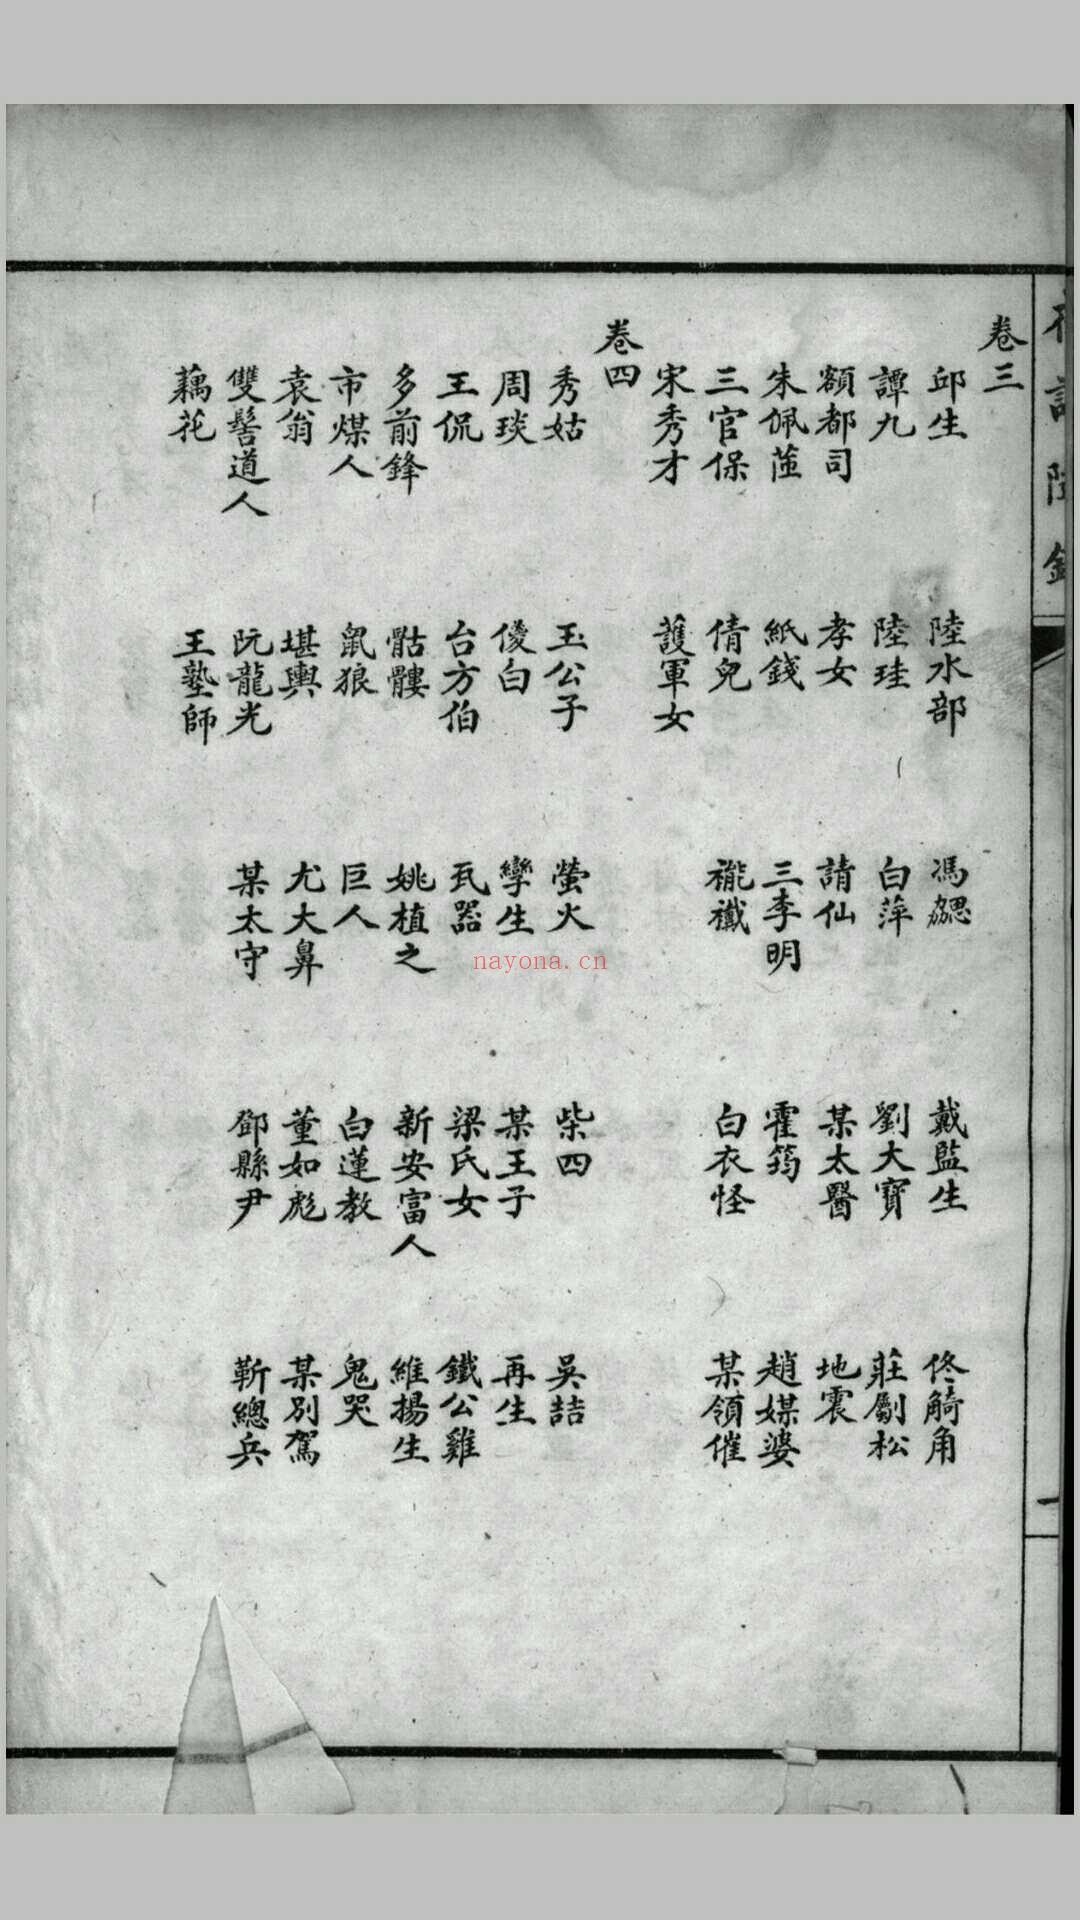 卷三
邱生 陸水部 馮勰 戴監生 佟觭角
譚九 陸珪 白萍 劉大賓 莊劚松
額都司 孝女 請仙 某太醫 地震
朱佩茝 紙錢 三李明 霍筠 趙媒婆
三官保 倩兒 襤襶 白衣怪 某領催
宋秀才 護軍女
卷四
秀姑 玉公子 螢火 柴四 吳喆
周琰 伥白 孿生 某王子 再生
王侃 台方伯 瓦器 梁氏女 鐵公雞
多前鋒 骷髏 姚植之 新安富人 維揚生
市煤人 鼠狼 巨人 白蓮教 鬼哭
袁翁 堪輿 尤大鼻 董如彪 某別駕
雙髻道人 阮龍光 某太守 鄧縣尹 靳總兵
藕花 王塾師
nayona.cn